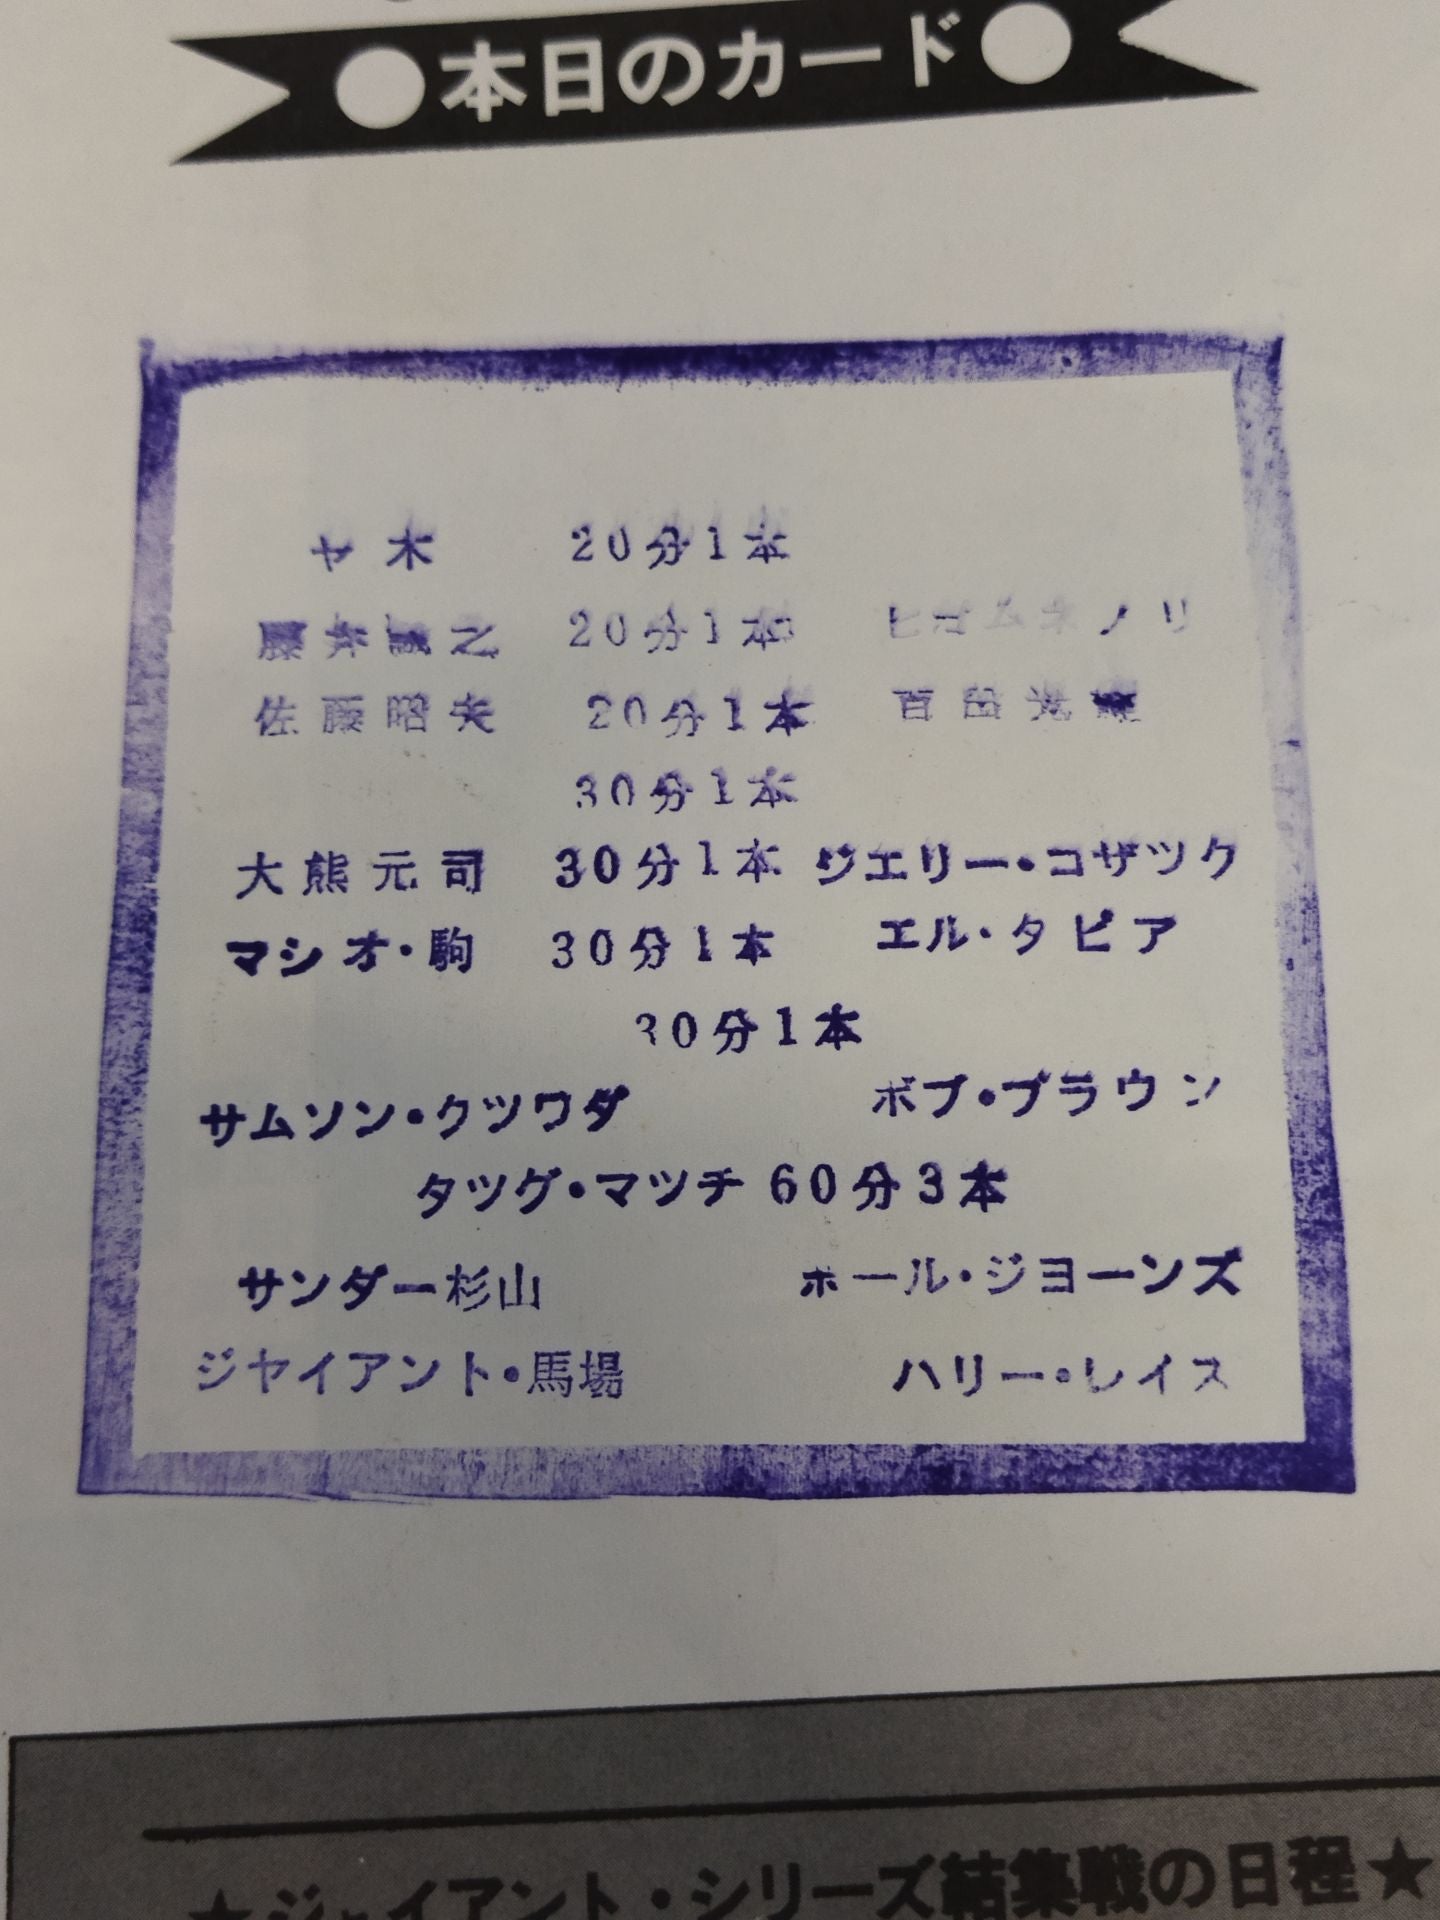 ●本日のカード●
ヤ木 20分1本
藤井誠之 20分1本 ヒゴムネノリ
佐藤昭夫 20分1本 百田光雄
30分1本
大熊元司 30分1本 ジエリー・コザツク
マシオ・駒 30分1本 エル・タピア
30分1本
サムソン・クツワダ ボブ・ブラウン
タツグ・マツチ 60分3本
サンダー杉山 ポール・ジヨーンズ
ジヤイアント・馬場 ハリー・レイス
★ジャイアント・シリーズ結集戦の日程★